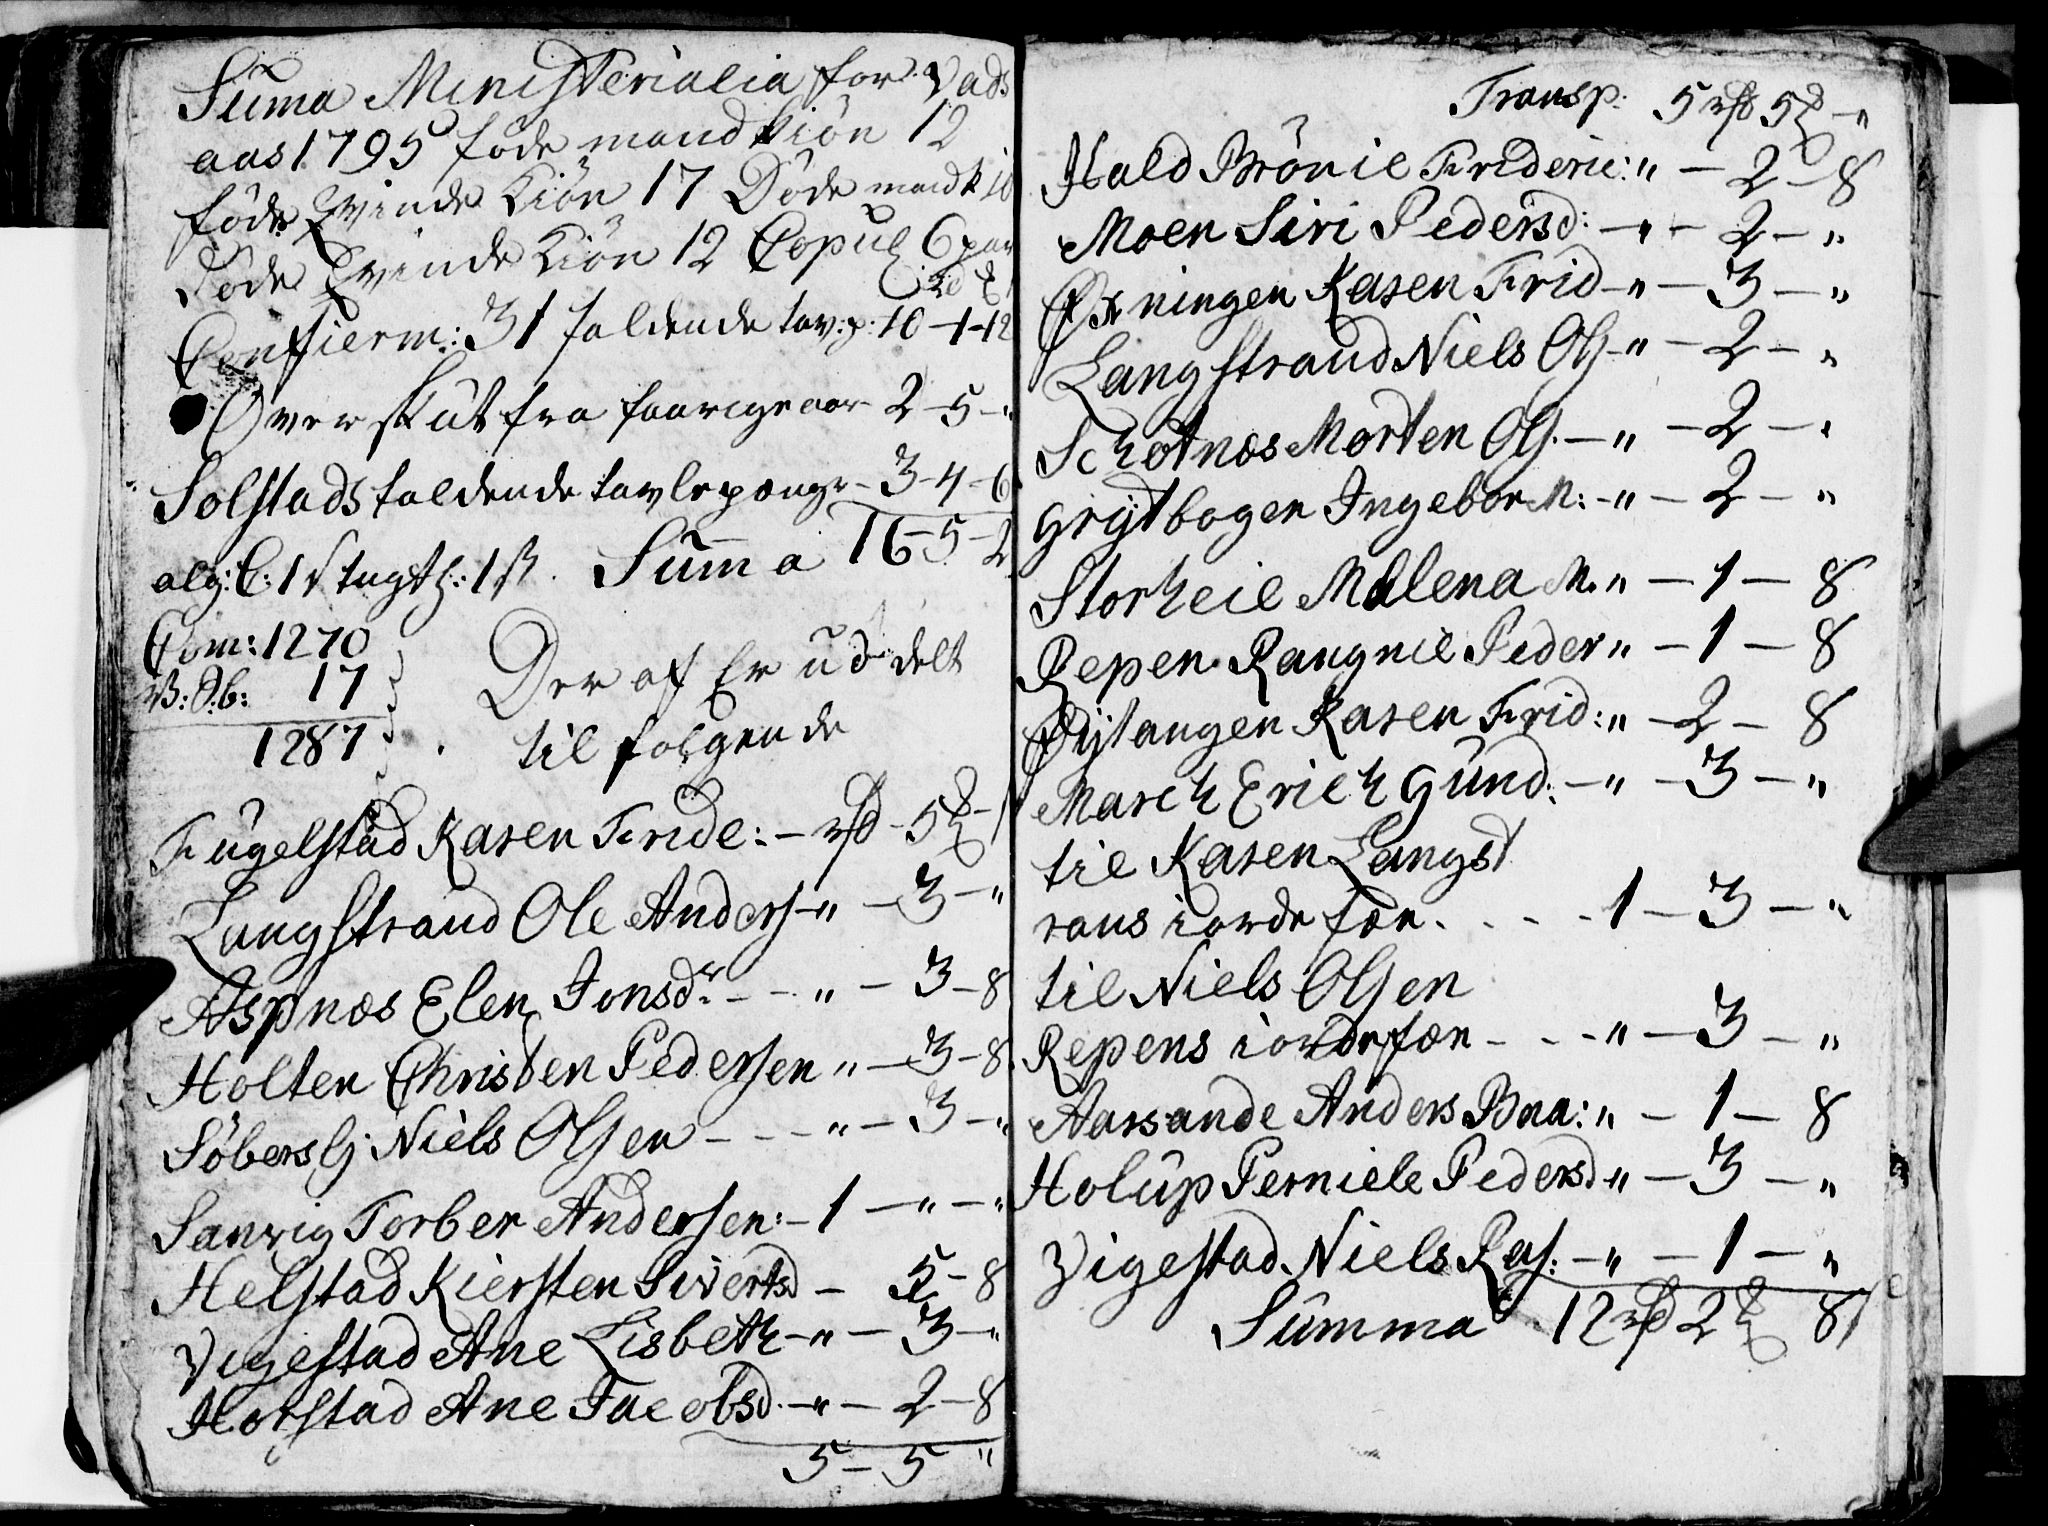 Suma Ministerialia for Vads
aas 1795 föde mandkiön 12
föde Qvinde Kiön 17 Döde mandk 10
Döde Qvinde Kiön 12 Copul 6 par
Confierm: 31 faldende tav: p: 10 – 1 – 12
Over skut fra faarige aar 2 – 5 – "
Solstads faldende tavlepænge – 3 – 4 – 6
alg: C: 1 ß tugth: 1 ß. Summa 16 – 5 – 2
Com: 1270
B: S:b: 17
1287
Der af Er uddelt
til følgende
Fugelstad Karen Fride: – rd – 5 –
Langstrand Ole Anders – " – 3 – "
Aspnæs Elen Jonsdr – – " – 3 – 8
Holten Christen Pedersen " – 3 – 8
Söbersb: Niels Olsen – – – " – 3 – "
Sanvig Torber Andersen: – 1 – " – "
Helstad Kiersten Sivertsd – 5 – 8
Vigestad Ane Lisbeth – " – 3 – "
Horstad Ane Jacobsd. – " – 2 – 8
5 – 5 "
Transp: 5 rd 5 – "
Hald Brönil Frideric: " – 2 – 8
Moen Siri Pedersd: – " – 2 – "
Øxningen Karen Frid – " – 3 – "
Langstrand Niels Ols – " – 2 – "
Schotnæs Morten Ols. – " – 2 – "
Grytbogen Ingebor M: – " – 2 – "
Storheil Malena M. " – 1 – 8
Repen Rangnil Peder " – 1 – 8
Øytangen Karen Frid: " – 2 – 8
Marsch Erich Gund: – " – 3 – "
til Karen Langst
rans iordefær . . . . 1 – 3 – "
til Niels Olsen
Repens iordefær – – – " – 3 – "
Aarsande Anders Bna: " – 1 – 8
Holup Perniele Pedersd " – 3 – "
Vigestad Niels Ras: – " – 1 – "
Summa 12 rd 2 8